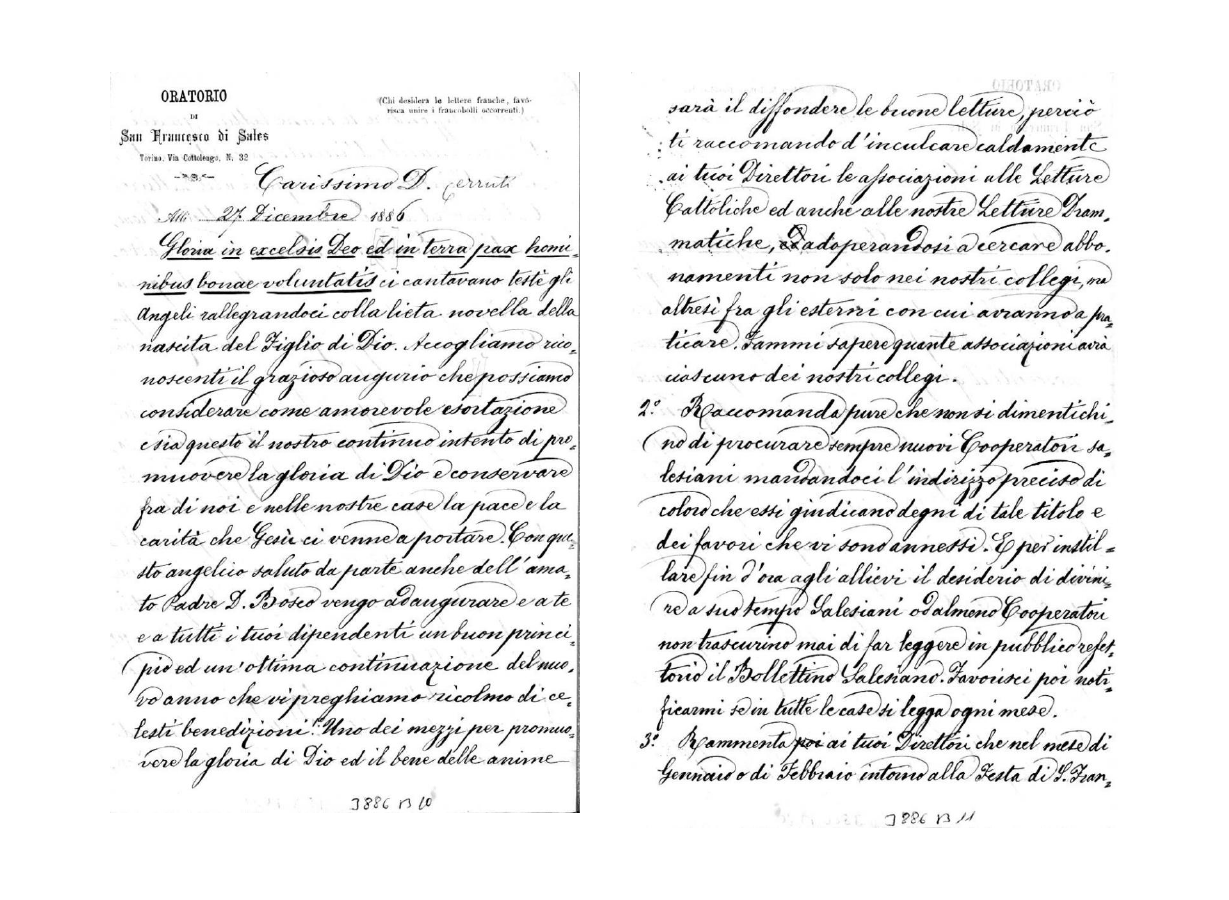 ORATORIO
DI
San Francesco di Sales
Torino. Via Cottolengo, N. 32
(Chi desidera le lettere franche, favo-
risca unire i francobolli occorrenti.)
Carissimo D. Cerruti
27 Dicembre 1886
Gloria in excelsis Deo ed in terra pax homi=
nibus bonae voluntatis ci cantavano testè gli
Angeli rallegrandoci colla lieta novella della
nascita del Figlio di Dio. Accogliamo rico=
noscenti il grazioso augurio che possiamo
considerare come amorevole esortazione
e sia questo il nostro continuo intento di pro=
muovere la gloria di Dio e conservare
fra di noi e nelle nostre case la pace e la
carità che Gesù ci venne a portare. Con que=
sto angelico saluto da parte anche dell'ama=
to Padre D. Bosco vengo ad augurare e a te
e a tutti i tuoi dipendenti un buon princi=
pio ed un'ottima continuazione del nuo=
vo anno che vi preghiamo ricolmo di ce=
lesti benedizioni. Uno dei mezzi per promuo=
vere la gloria di Dio ed il bene delle anime
J886 B 10
ORATORIO
sarà il diffondere le buone letture, perciò
ti raccomando d'inculcare caldamente
ai tuoi Direttori le associazioni alle Letture
Cattoliche ed anche alle nostre Letture Dram=
matiche, adoperandosi a cercare abbo=
namenti non solo nei nostri collegi, ma
altresì fra gli esterni con cui avranno a pra=
ticare. Fammi sapere quante associazioni avrà
ciascuno dei nostri collegi.
2° Raccomanda pure che non si dimentichi=
no di procurare sempre nuovi Cooperatori sa=
lesiani mandandoci l'indirizzo preciso di
coloro che essi giudicano degni di tale titolo e
dei favori che vi sono annessi. E per instil=
lare fin d'ora agli allievi il desiderio di diveni=
re a suo tempo Salesiani od almeno Cooperatori
non trascurino mai di far leggere in pubblico refet=
torio il Bollettino Salesiano. Favorisci poi noti=
ficarmi se in tutte le case si legga ogni mese.
3° Rammenta poi ai tuoi Direttori che nel mese di
Gennaio o di Febbraio intorno alla Festa di S. Fran=
J886 B 11